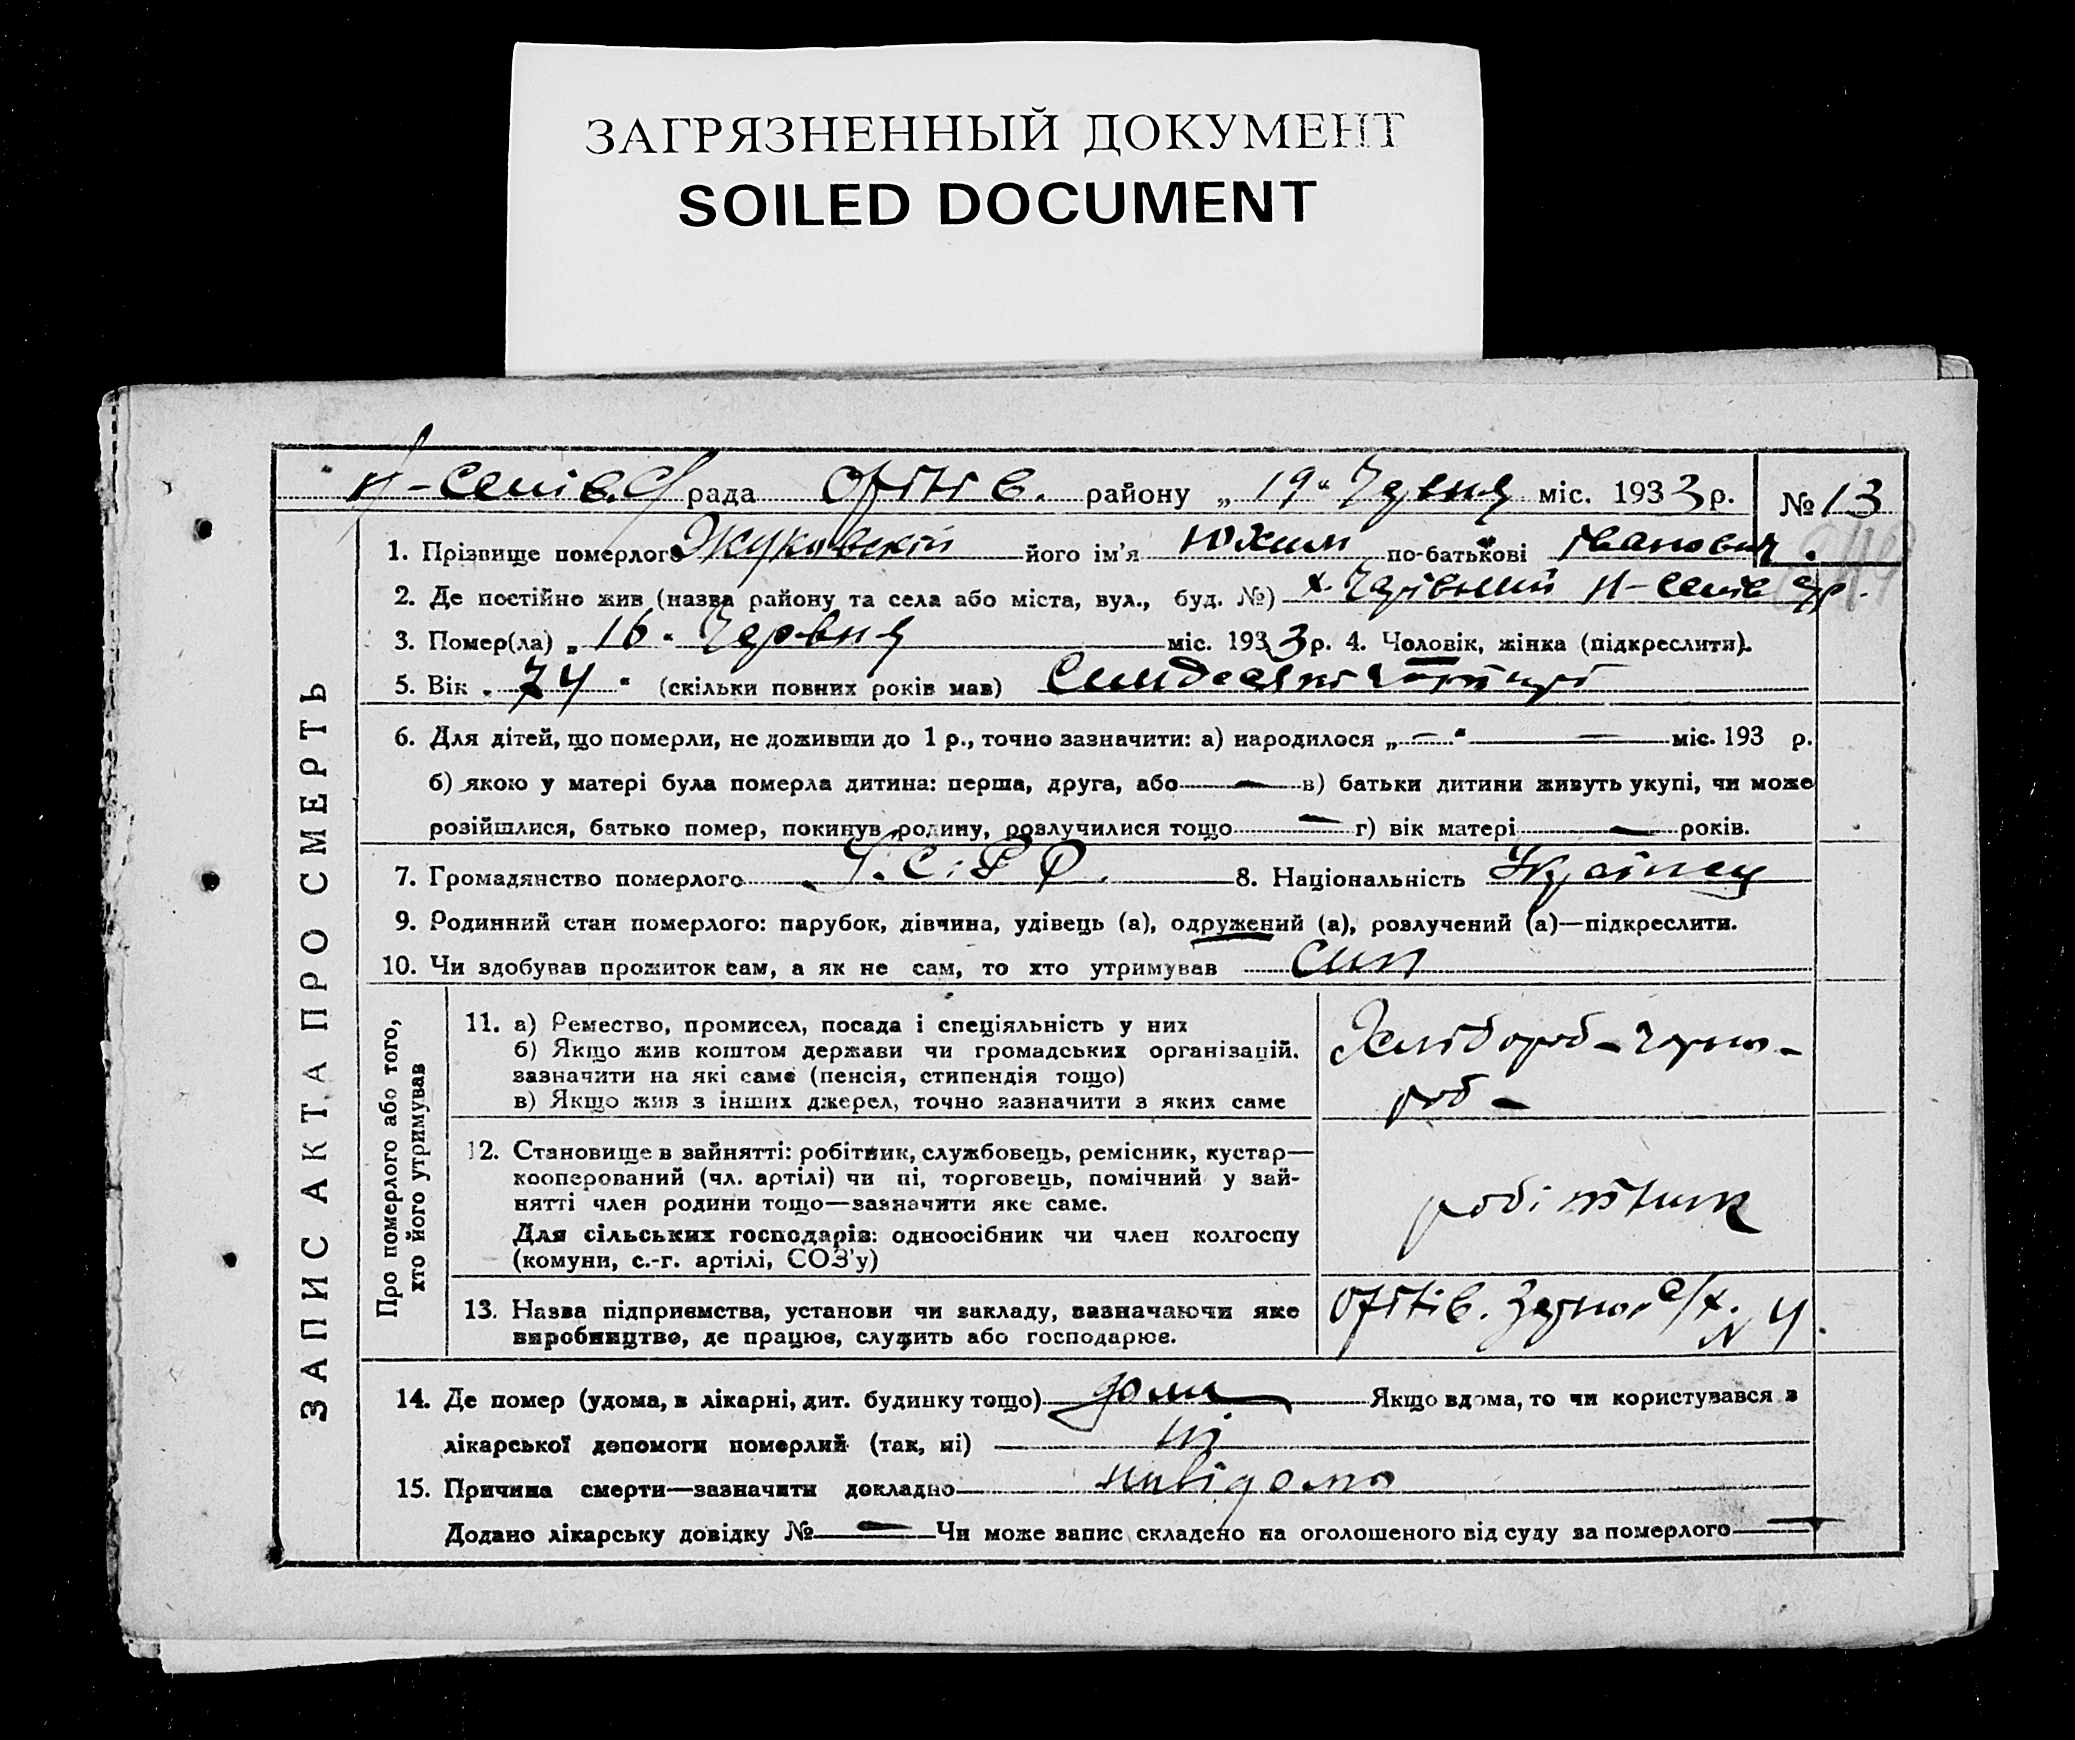 ЗАГРЯЗНЕННЫЙ ДОКУМЕНТ
SOILED DOCUMENT
рада району „ 19 “ Червня міс. 1933 р. № 13
1. Прізвище померлого Жуковский його ім’я Юхим по-батькові Іванович.
2. Де постійно жив (назва району та села або міста, вул., буд. №) х.
3. Помер(ла) „ 16 “ Червня міс. 1933 р. 4. Чоловік, жінка (підкреслити).
5. Вік „ 74 “ (скільки повних років мав) Симдесят чотири
6. Для дітей, що померли, не доживши до 1 р., точно зазначити: а) народилося „ — “ — міс. 193 р.
б) якою у матері була померла дитина: перша, друга, або — в) батьки дитини живуть укупі, чи може
розійшлися, батько помер, покинув родину, розлучилися тощо — г) вік матері — років.
7. Громадянство померлого 8. Національність Українец
9. Родинний стан померлого: парубок, дівчина, удівець (а), одружений (а), розлучений (а)—підкреслити.
10. Чи здобував прожиток сам, а як не сам, то хто утримував син
ЗАПИС АКТА ПРО СМЕРТЬ
Про померлого або того,
хто його утримував
11. а) Ремество, промисел, посада і спеціяльність у них
б) Якщо жив коштом держави чи громадських організацій.
зазначити на які саме (пенсія, стипендія тощо)
в) Якщо жив з інших джерел, точно зазначити з яких саме
Хлібороб - чорно-
роб -
12. Становище в зайнятті: робітник, службовець, ремісник, кустар—
кооперований (чл. артілі) чи ні, торговець, помічний у зай-
нятті член родини тощо—зазначити яке саме.
Для сільських господарів: одноосібник чи член колгоспу
(комуни, с.-г. артілі, СОЗ’у)
робітник
13. Назва підприємства, установи чи закладу, зазначаючи яке
виробництво, де працює, служить або господарює.
№ 4.
14. Де помер (удома, в лікарні, дит. будинку тощо) дома Якщо вдома, то чи користувався з
лікарської допомоги померлий (так, ні) ні
15. Причина смерти—зазначити докладно невідомо
Додано лікарську довідку № — Чи може запис складено на оголошеного від суду за померлого —